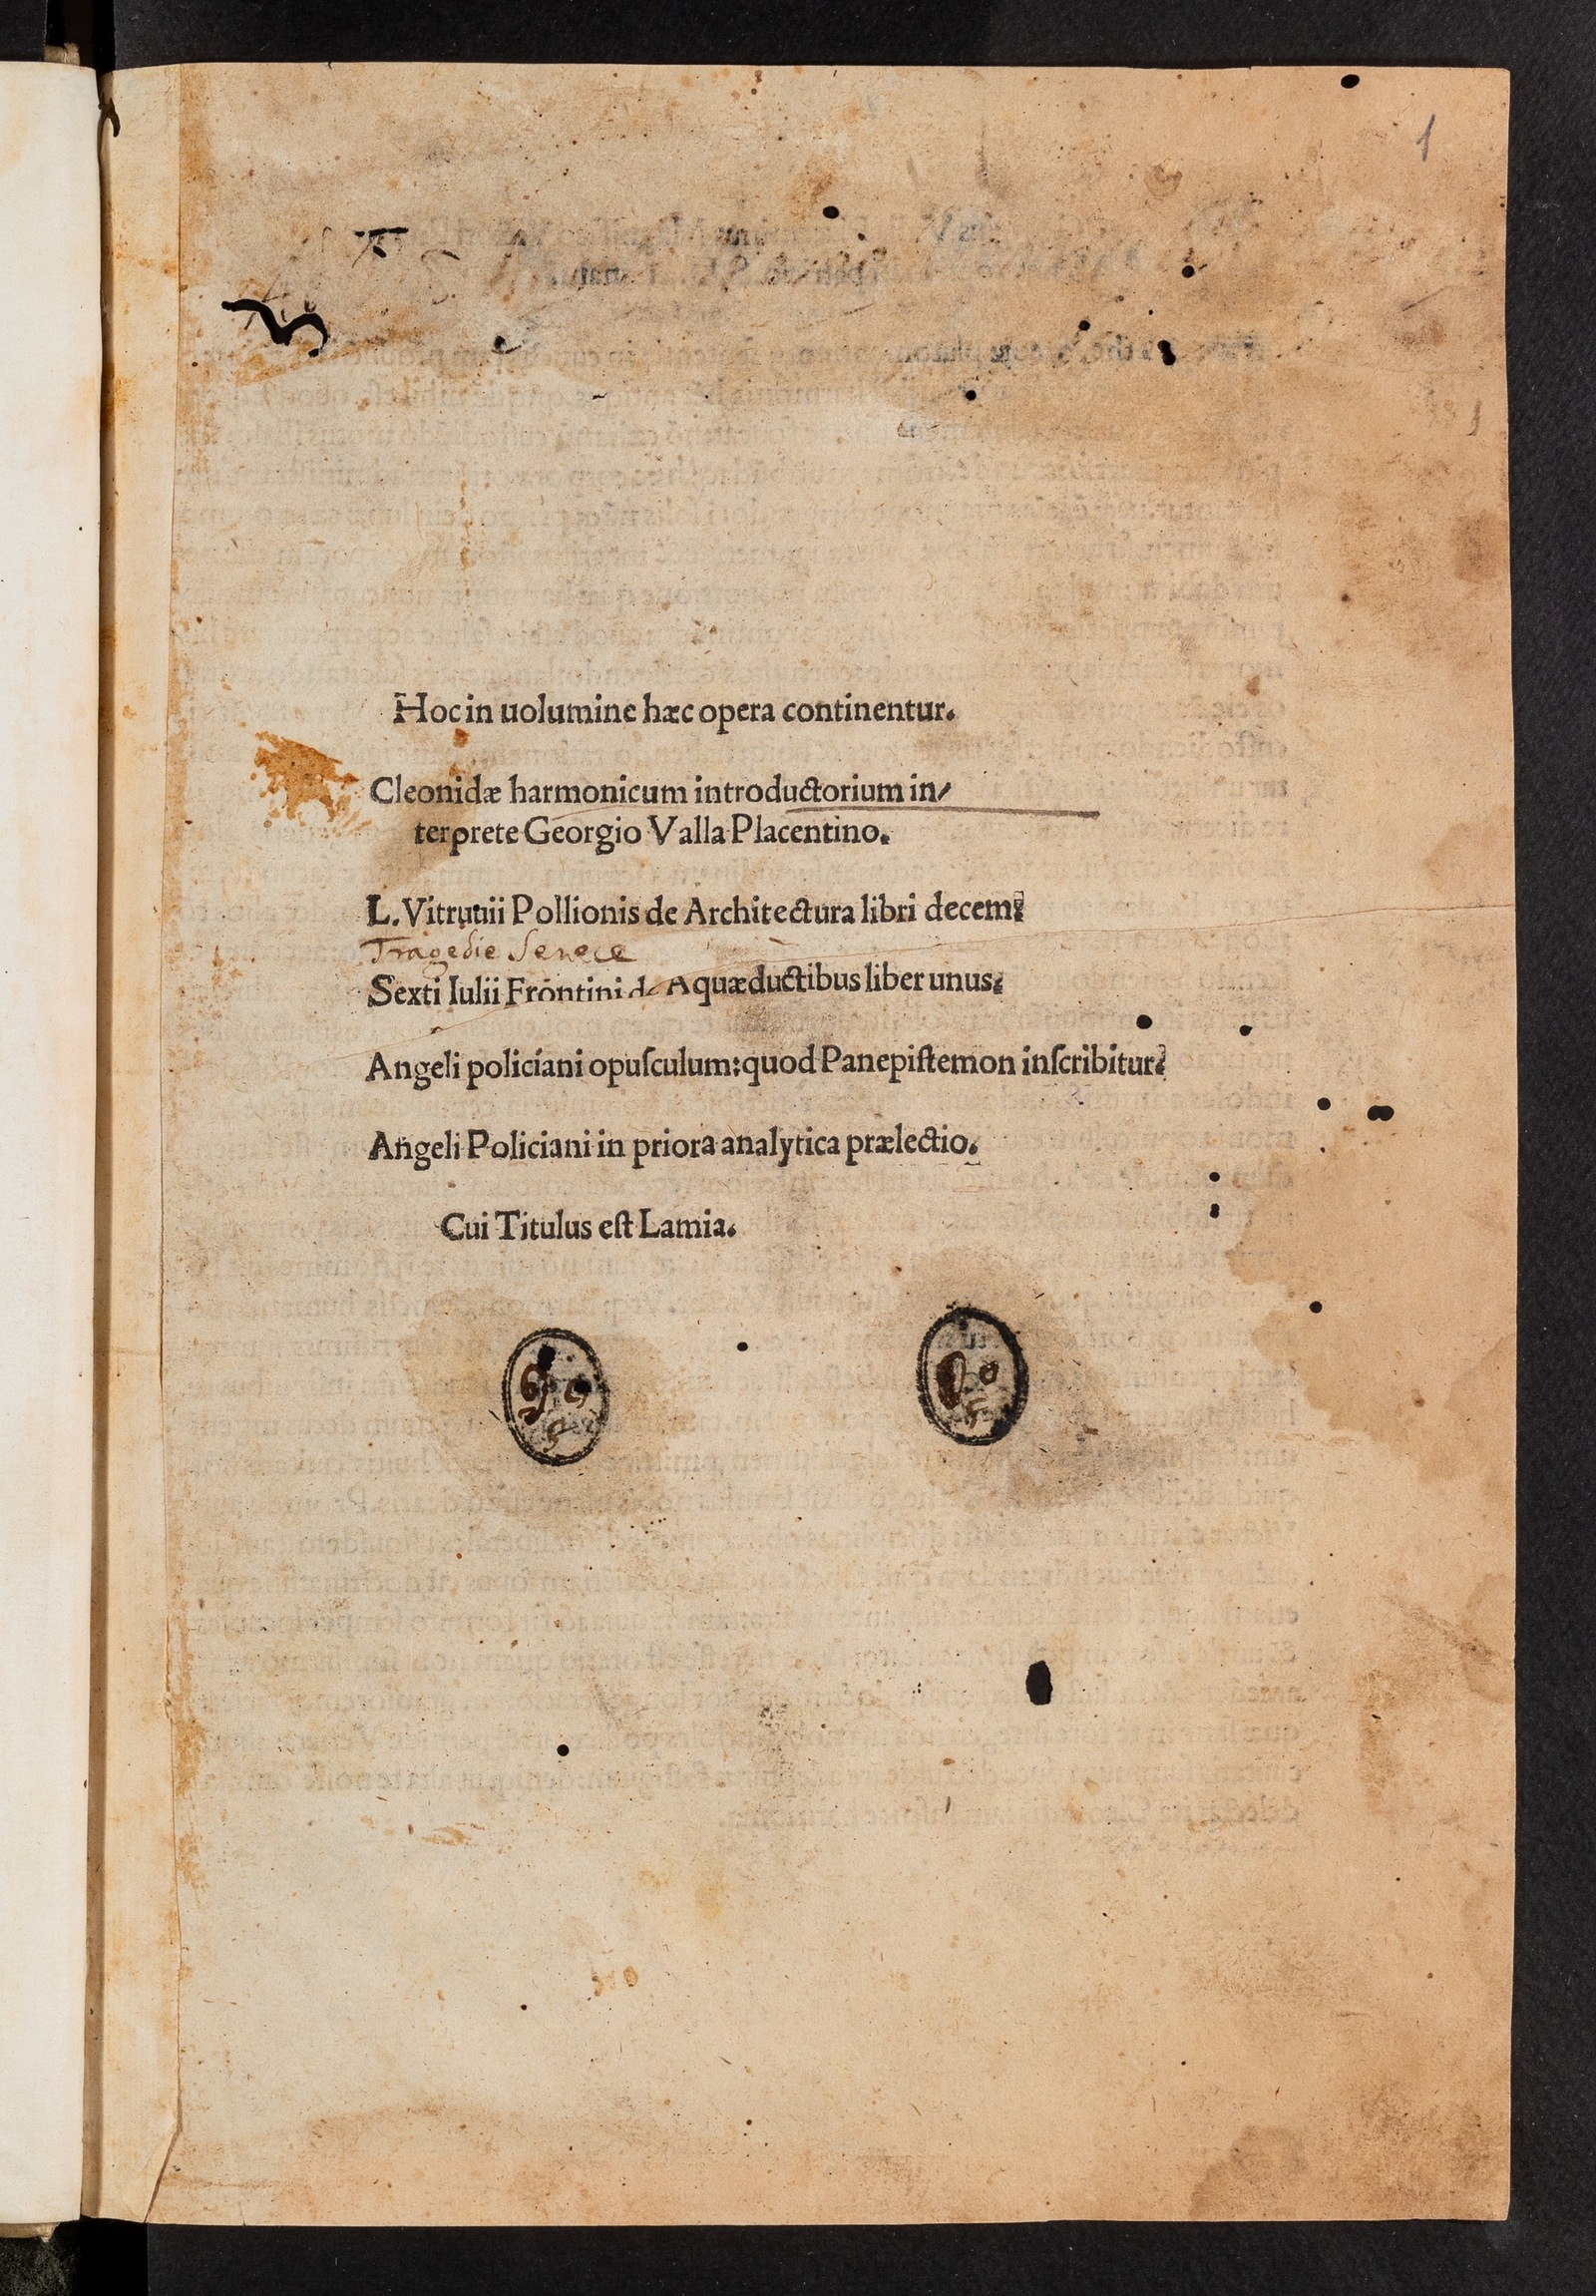 1
Hoc in uolumine hæc opera continentur.
Cleonidæ harmonicum introductorium in/
terprete Georgio Valla Placentino.
L. Vitruuii Pollionis de Architectura libri decem.
Tragedie Senece
Sexti Iulii Frontini de Aquæductibus liber unus.
Angeli policiani opuſculum: quod Panepiſtemon inſcribitur.
Angeli Policiani in priora analytica prælectio.
Cui Titulus eſt Lamia.